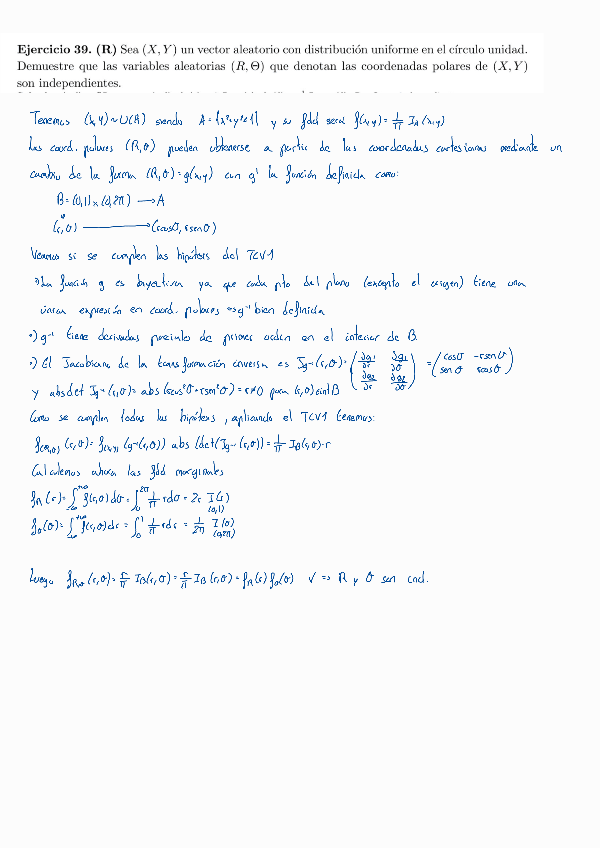 Ejercicio 39. (R) Sea (X, Y) un vector aleatorio con distribución uniforme en el círculo unidad.
Demuestre que las variables aleatorias (R, Θ) que denotan las coordenadas polares de (X, Y)
son independientes.
Tenemos (X,Y)~U(A) siendo A={x²+y²≤1} y su fdd será f(x,y)=1/π I_A(x,y)
Las coord. polares (R,θ) pueden obtenerse a partir de las coordenadas cartesianas mediante un
cambio de la forma (R,θ)=g(x,y) con g⁻¹ la función definida como:
B=(0,1)×(0,2π) → A
(r,θ) → (rcosθ, rsenθ)
Veamos si se cumplen las hipótesis del TCV1
·) La función g es biyectiva ya que cada pto del plano (excepto el origen) tiene una
única expresión en coord. polares ⇒ g⁻¹ bien definida
·) g⁻¹ tiene derivadas parciales de primer orden en el interior de B
·) El Jacobiano de la transformación inversa es Jg⁻¹(r,θ)= (∂g1/∂r ∂g1/∂θ ; ∂g2/∂r ∂g2/∂θ) = (cosθ -rsenθ ; senθ rcosθ)
y abs det Jg⁻¹(r,θ)= abs(rcos²θ+rsen²θ)=r≠0 para (r,θ)∈int B
Como se cumplen todas las hipótesis, aplicando el TCV1 tenemos:
f(R,θ)(r,θ)= f(X,Y)(g⁻¹(r,θ)) abs(det(Jg⁻¹(r,θ))=1/π I_B(r,θ)·r
Calculemos ahora las fdd marginales
f_R(r)=∫_{-∞}^{+∞} f(r,θ)dθ=∫_0^{2π} 1/π rdθ = 2r I(r)_(0,1)
f_θ(θ)=∫_{-∞}^{+∞} f(r,θ)dr = ∫_0^1 1/π rdr = 1/2π I(θ)_(0,2π)
Luego f_{R,θ}(r,θ)=r/π I_B(r,θ)=r/π I_B(r,θ)=f_R(r)f_θ(θ) ✓ ⇒ R y θ son ind.